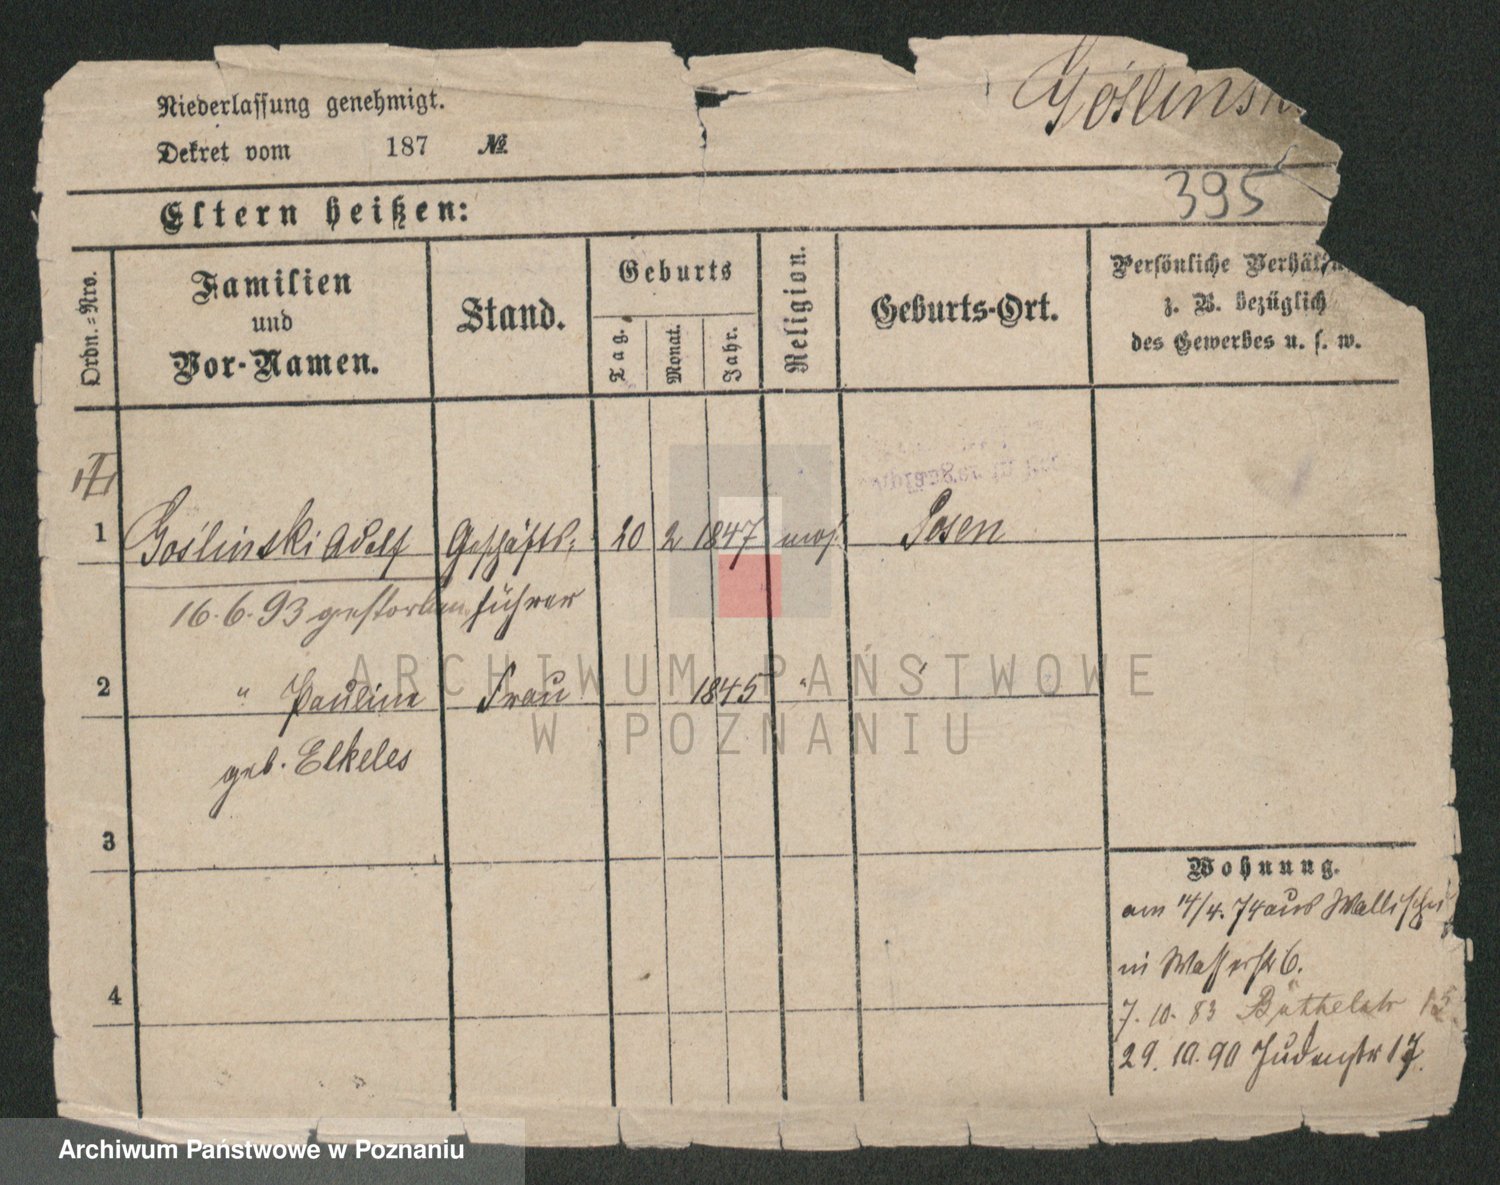 Niederlassung genehmigt.
Goślinski
Dekret vom 187 №.
395
Eltern heißen:
Ordn.-Nro.
Familien
und
Vor-Namen.
Stand.
Geburts
Tag.
Monat.
Jahr.
Religion.
Geburts-Ort.
Persönliche
z. B. bezüglich
des Gewerbes u. s. w.
1 Goślinski Adolf Geschäfts- 20 2 1847 mos. Posen
16.6.93 gestorben führer
2 " Pauline Frau 1845 "
geb. Elkeles
3
Wohnung.
am 14/4. 74 aus Wallischei
in Wasserstr 6.
4
7. 10. 83 Büttelstr 15
29. 10. 90 Judenstr 17.
ARCHIWUM PAŃSTWOWE
W POZNANIU
Archiwum Państwowe w Poznaniu